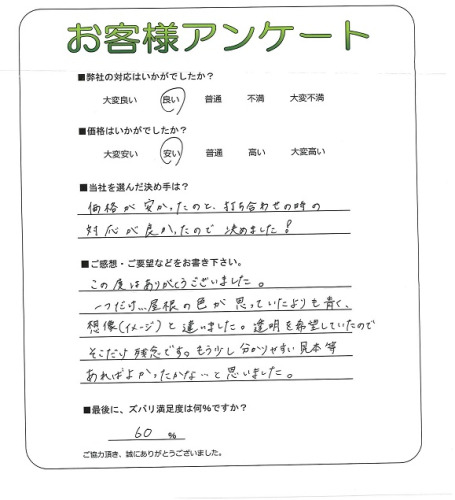 お客様アンケート
■弊社の対応はいかがでしたか?
大変良い 良い 普通 不満 大変不満
■価格はいかがでしたか?
大変安い 安い 普通 高い 大変高い
■当社を選んだ決め手は?
価格が安かったのと、打ち合わせの時の
対応が良かったので 決めました!
■ご感想・ご要望などをお書き下さい。
この度はありがとうございました。
一つだけ…屋根の色が 思っていたよりも青く、
想像(イメージ)と違いました。透明を希望していたので
そこだけ残念です。もう少し分かりやすい見本等
あればよかったかな、と思いました。
■最後に、ズバリ満足度は何%ですか?
60 %
ご協力頂き、誠にありがとうございました。